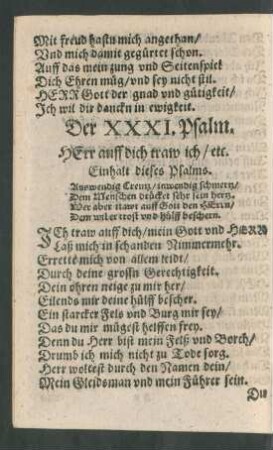 Mit freud hastu mich angethan/
Vnd mich damit gegürtet schon.
Auff das mein zung vnd Seitenspiel
Dich Ehren müg/vnd sey nicht stil.
HERR Gott der gnad vnd gütigkeit/
Ich wil dir dancken in ewigkeit.
Der XXXI. Psalm.
HErr auff dich traw ich/etc.
Einhalt dieses Psalms.
Auswendig Creutz/inwendig schmertz/
Dem Menschen drücket sehr sein hertz.
Wer aber nawr auff Gott den HErrn/
Dem wil er trost vnd hülff beschern.
ICh traw auff dich/mein Gott vnd HERR
Laß mich in schanden Nimmermehr.
Errette mich von allem leidt/
Durch deine grossn Gerechtigkeit.
Dein ohren neige zu mir her/
Eilends mir deine hülff bescher.
Ein starcker Fels vnd Burg mir sey/
Das du mir mügest helffen frey.
Denn du Herr bist mein Felß vnd Borch/
Drumb ich mich nicht zu Tode sorg.
Herr woltest durch den Namen dein/
Mein Gleidsman vnd mein Führer sein.